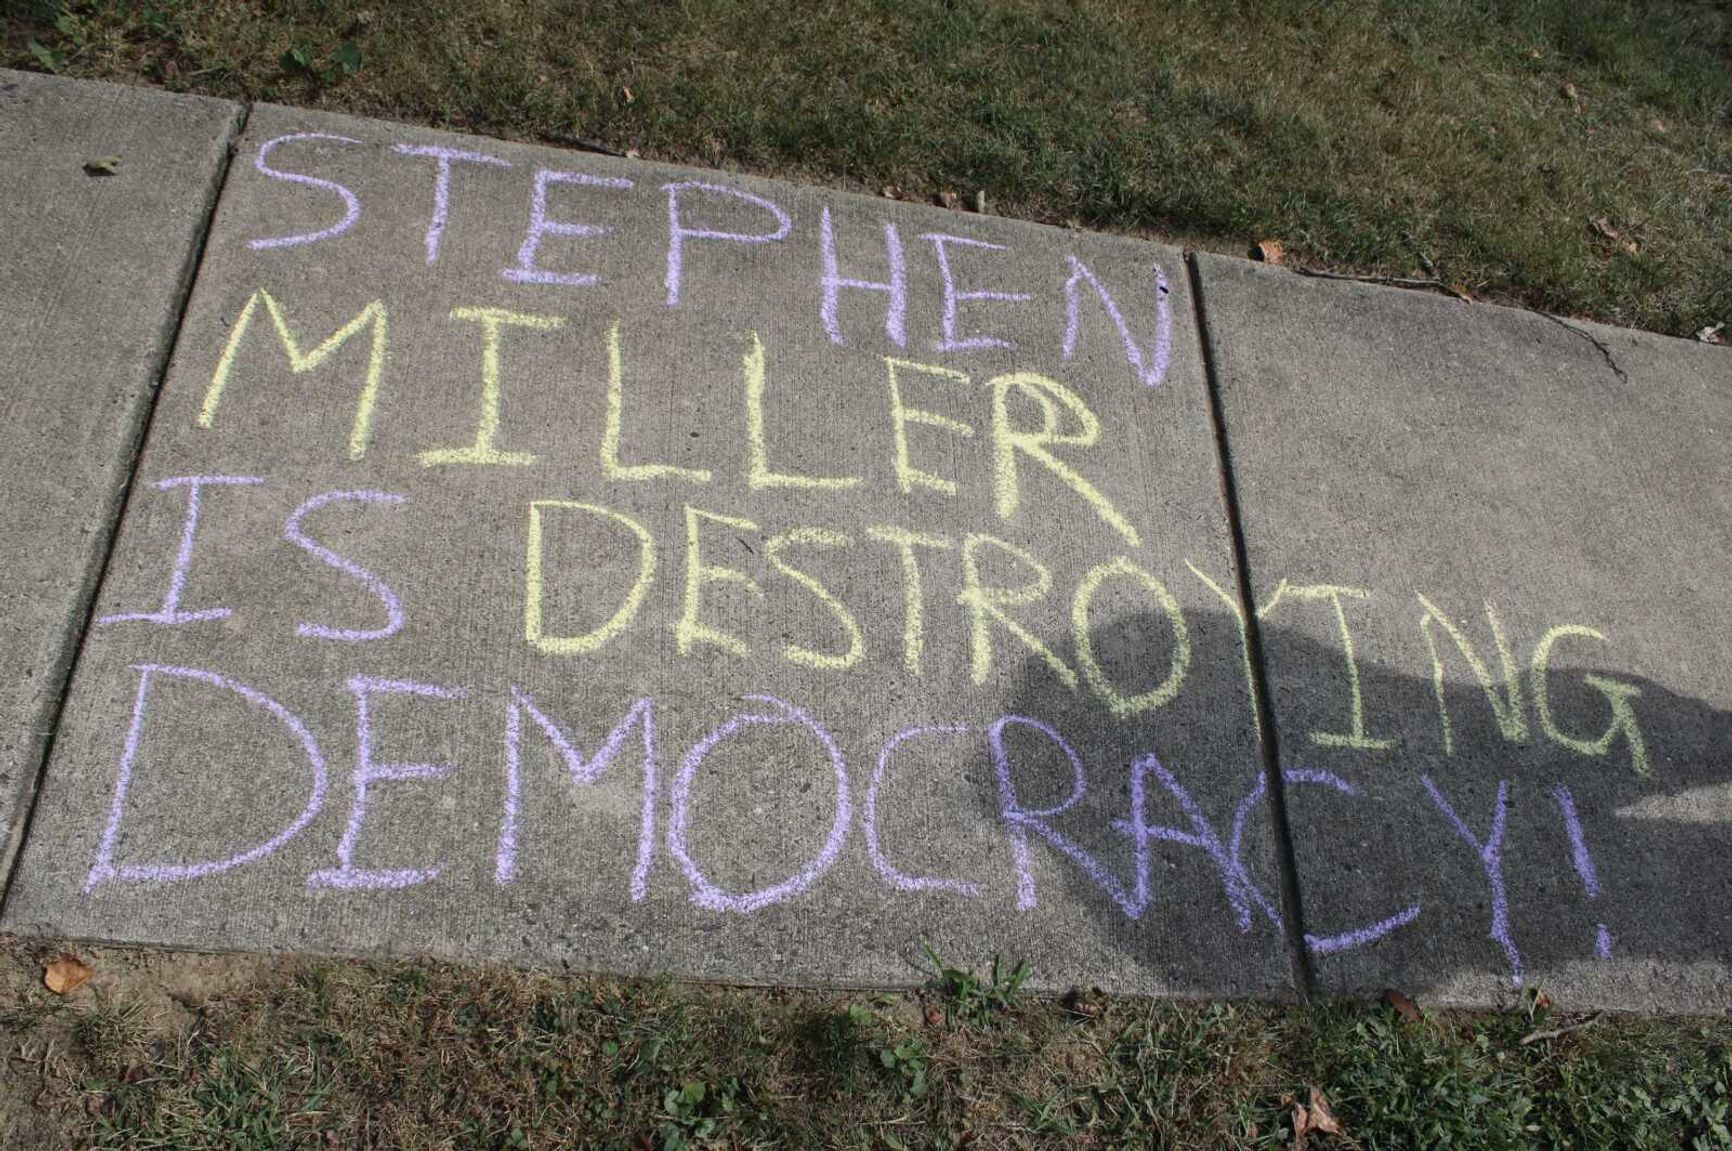 STEPHEN
MILLER
IS DESTROYING
DEMOCRACY!